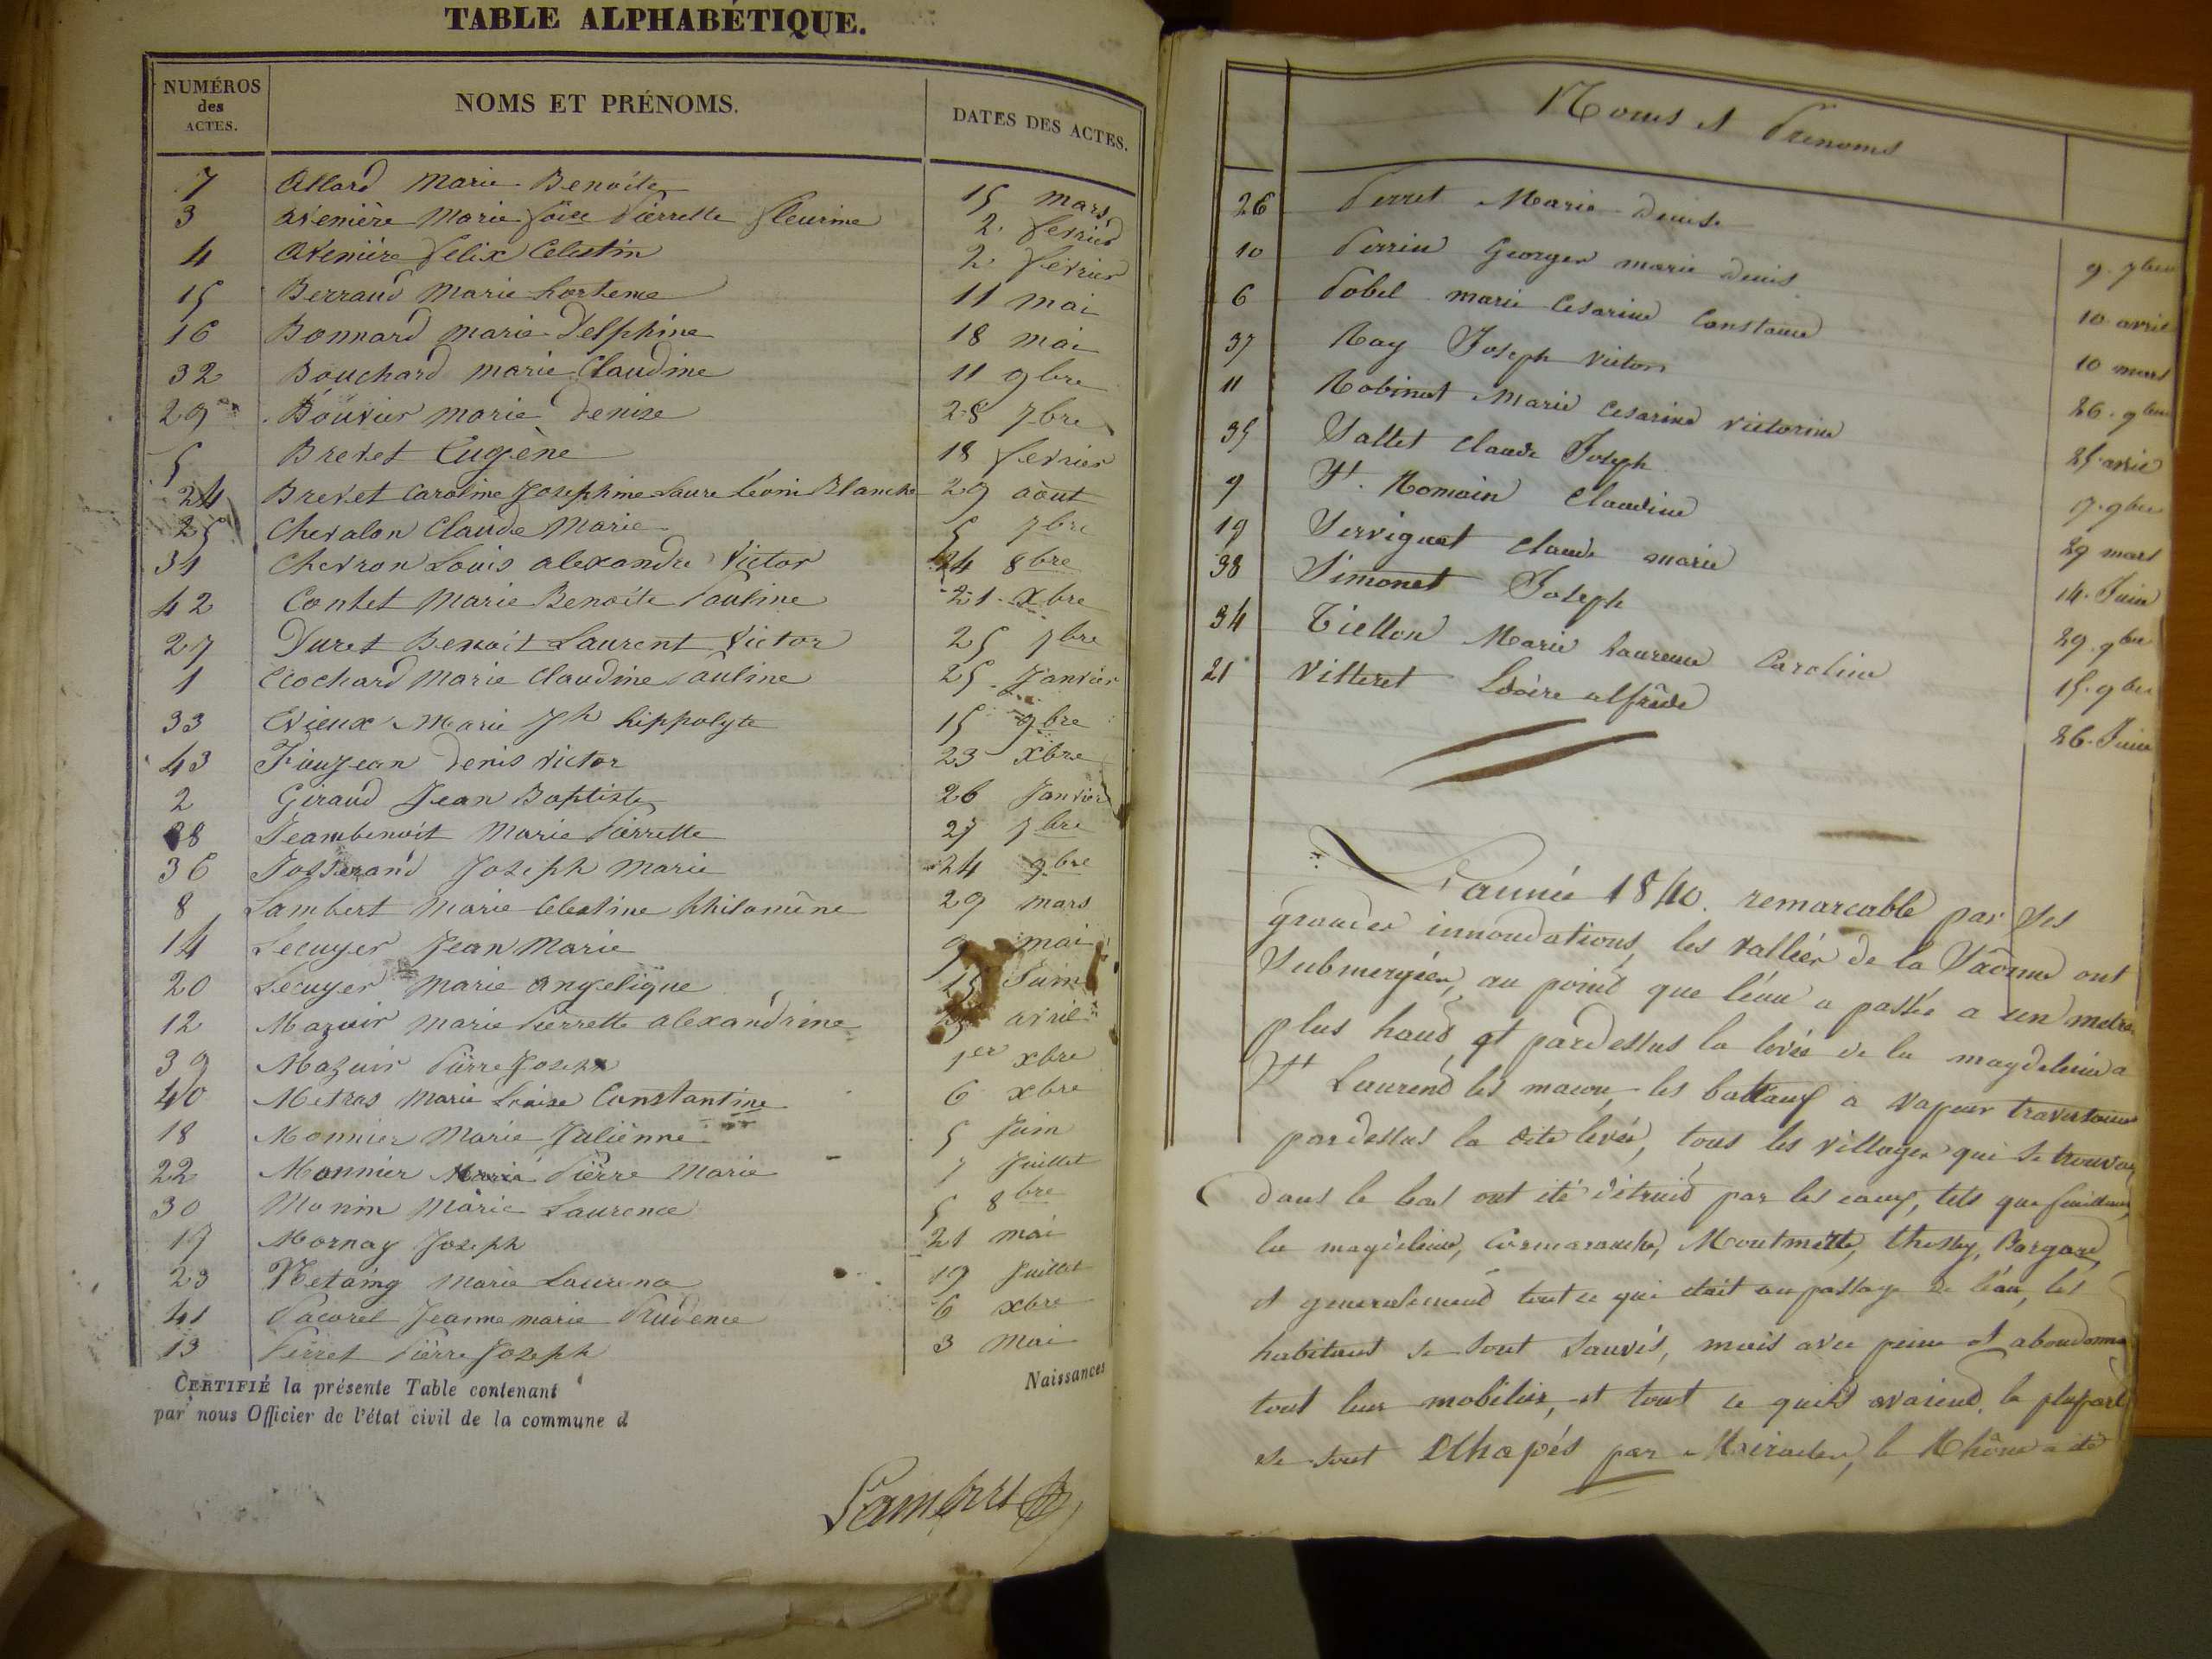 TABLE ALPHABÉTIQUE.
NUMÉROS des ACTES. NOMS ET PRÉNOMS. DATES DES ACTES.
7 Allard Marie Benoite 15 mars
3 Avenière Marie Pierrette fleurine 2 fevrier
4 Avenière felix Celestin 2 fevrier
15 Berraud Marie hortence 11 mai
16 Bonnard marie Delphine 18 mai
32 Bouchard marie Claudine 11 9bre
29 Bouvier marie denise 28 7bre
5 Brevet Eugène 18 fevrier
24 Brevet Caroline Josephine Laure Léonie Blanche 29 août
25 Chevalon Claude Marie 5 7bre
31 Chevron Louis alexandre Victor 24 8bre
42 Contet Marie Benoite Pauline 21 xbre
27 Duret Benoit Laurent Victor 25 7bre
1 Ecochard Marie Claudine Pauline 25 Janvier
33 Evieux Marie Jh hippolyte 15 9bre
43 Faujean denis victor 23 xbre
2 Giraud Jean Baptiste 26 Janvier
28 Jeambenoit Marie Pierrette 27 7bre
36 Josserand Joseph Marie 24 9bre
8 Lambert Marie Celestine philomène 29 mars
14 Lecuyer Jean Marie 9 mai
20 Lecuyer Marie angelique 15 Juin
12 Mazuir Marie Pierrette alexandrine avril
39 Mazuir Pierre Joseph 1er xbre
40 Metras Marie Louise Constantine 6 xbre
18 Monnier Marie Julienne 5 Juin
22 Monnier Marie Pierre Marie 7 Juillet
30 Monin Marie Laurence 5 8bre
17 Mornay Joseph 21 mai
23 Marie Laurence 19 Juillet
41 Pacoret Jeanne marie Prudence 6 xbre
13 Perret Pierre Joseph 3 Mai
CERTIFIÉ la présente Table contenant Naissances
par nous Officier de l'état civil de la commune d
Lambert
Noms et Prenoms
26 Perret Marie denise 9 7bre
10 Perrin Georges marie denis 10 avril
6 Pobel marie Cesarine Constance 10 mars
37 Ray Joseph victor 26 9bre
11 Robinet Marie Cesarine victorine 25 avril
35 Sallet Claude Joseph 17 9bre
9 St. Romain Claudine 29 mars
19 Servignat Claude marie 14 Juin
38 Simonet Joseph 29 9bre
34 Tiellon Marie Laurence Caroline 15 9bre
21 Villeret alfrède 26 Juin
L'année 1840 remarcable par ses
grandes innondations, les valleés de la Sâonne ont
submergées, au point que l'éau a passée a un metre
plus haud et pardessus la levée de la magdeleine a
St Laurend les macon, les battaux a vapeur traversoient
pardessus la dite levée, tous les villages qui se trouvoy
dans le bas ont été détruid par les eaux, tels que
la magdeleine, Cormaranche, Montmerle, thossey,
et generalemend tout ce qui étoit au passage de l'éau, les
habitans se sont sauvés, mais avec peine et abondonné
tout leur mobilier, et tout ce quils avaiend, la plupart
se sont Échapés par Miracles, le Rhône a été